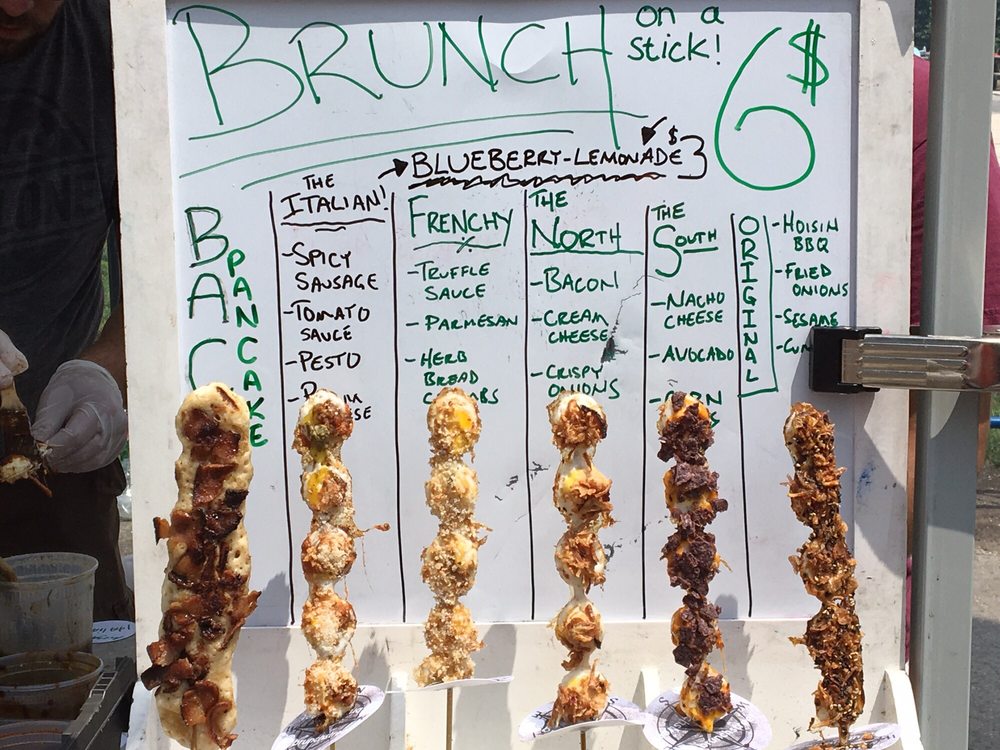 BRUNCH
on a
stick!
6$
BLUEBERRY-LEMONADE $3
BAC
PANCAKE
THE
ITALIAN!
-SPICY
SAUSAGE
-TOMATO
SAUCE
-PESTO
FRENCHY
-TRUFFLE
SAUCE
-PARMESAN
-HERB
BREAD
THE
NORTH
-BACON
-CREAM
CHEESE
-CRISPY
ONIONS
THE
SOUTH
-NACHO
CHEESE
-AVOCADO
ORIGINAL
-HOISIN
BBQ
-FRIED
ONIONS
-SESAME